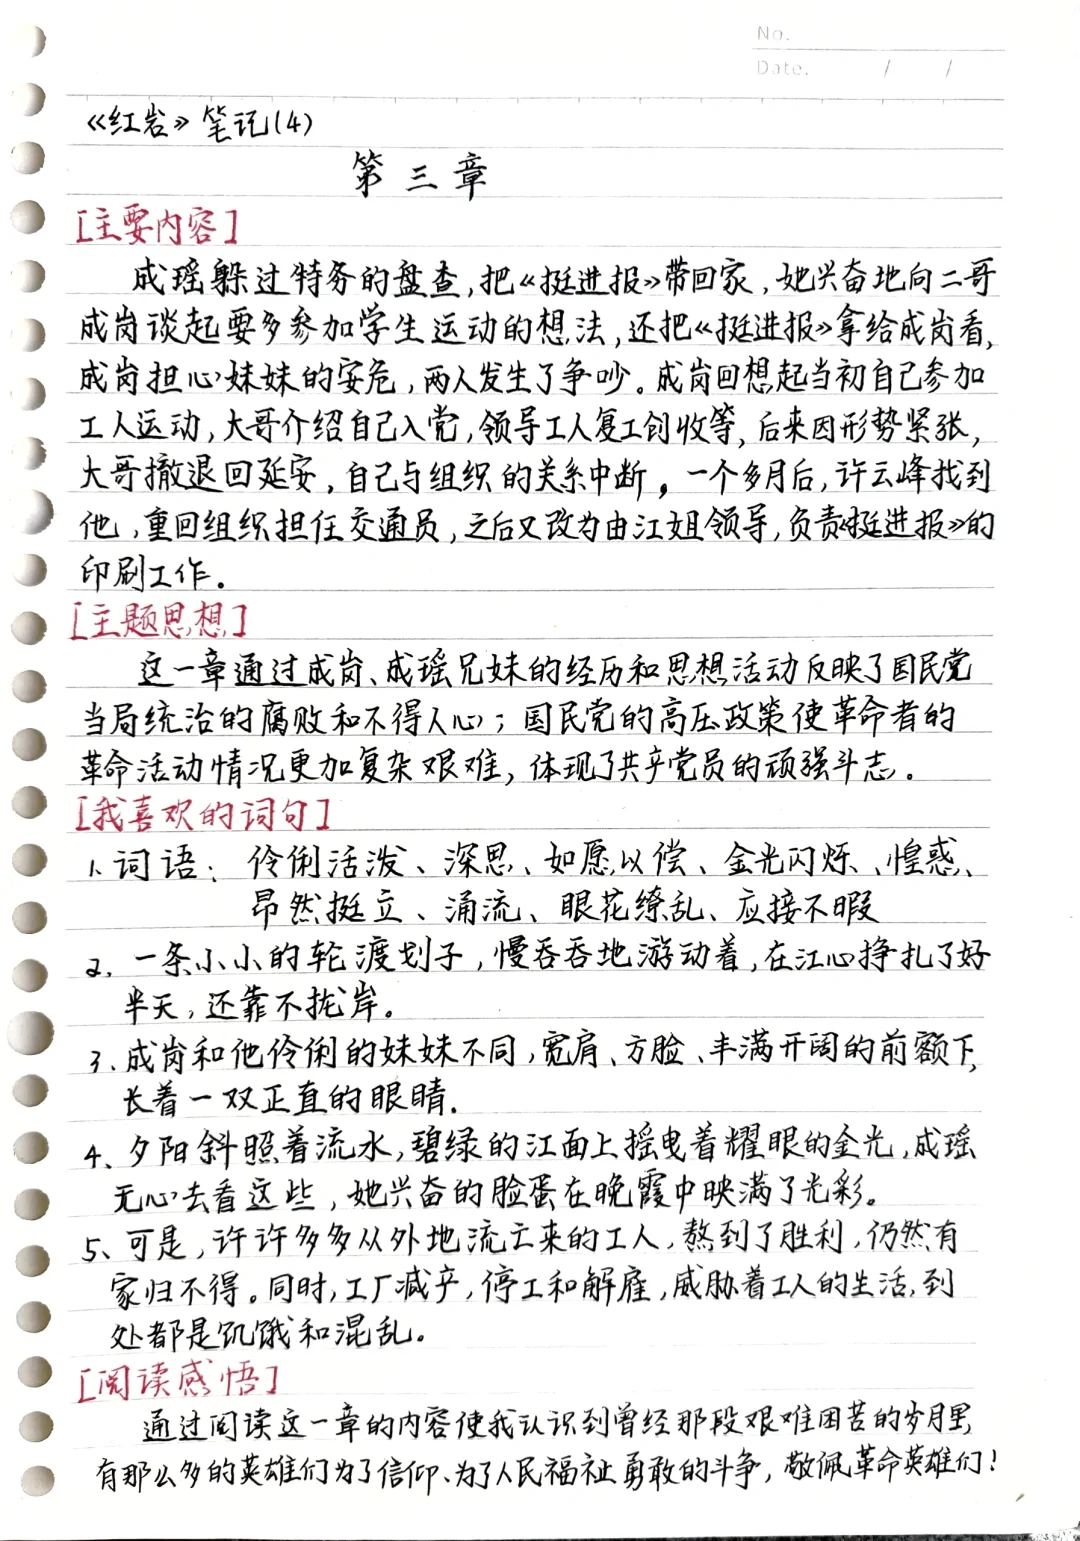 No.
Date. / /
《红岩》笔记(4)
第三章
[主要内容]
成瑶躲过特务的盘查,把《挺进报》带回家,她兴奋地向二哥
成岗谈起要多参加学生运动的想法,还把《挺进报》拿给成岗看,
成岗担心妹妹的安危,两人发生了争吵。成岗回想起当初自己参加
工人运动,大哥介绍自己入党,领导工人复工创收等,后来因形势紧张,
大哥撤退回延安,自己与组织的关系中断,一个多月后,许云峰找到
他,重回组织担任交通员,之后又改为由江姐领导,负责《挺进报》的
印刷工作。
[主题思想]
这一章通过成岗、成瑶兄妹的经历和思想活动反映了国民党
当局统治的腐败和不得人心;国民党的高压政策使革命者的
革命活动情况更加复杂艰难,体现了共产党员的顽强斗志。
[我喜欢的词句]
1.词语:伶俐活泼、深思、如愿以偿、金光闪烁、惶惑、
昂然挺立、涌流、眼花缭乱、应接不暇
2.一条小小的轮渡划子,慢吞吞地游动着,在江心挣扎了好
半天,还靠不拢岸。
3、成岗和他伶俐的妹妹不同,宽肩、方脸、丰满开阔的前额下,
长着一双正直的眼睛.
4、夕阳斜照着流水,碧绿的江面上摇曳着耀眼的金光,成瑶
无心去看这些,她兴奋的脸蛋在晚霞中映满了光彩。
5、可是,许许多多从外地流亡来的工人,熬到了胜利,仍然有
家归不得。同时,工厂减产,停工和解雇,威胁着工人的生活,到
处都是饥饿和混乱。
[阅读感悟]
通过阅读这一章的内容使我认识到曾经那段艰难困苦的岁月里,
有那么多的英雄们为了信仰、为了人民福祉勇敢的斗争,敬佩革命英雄们!